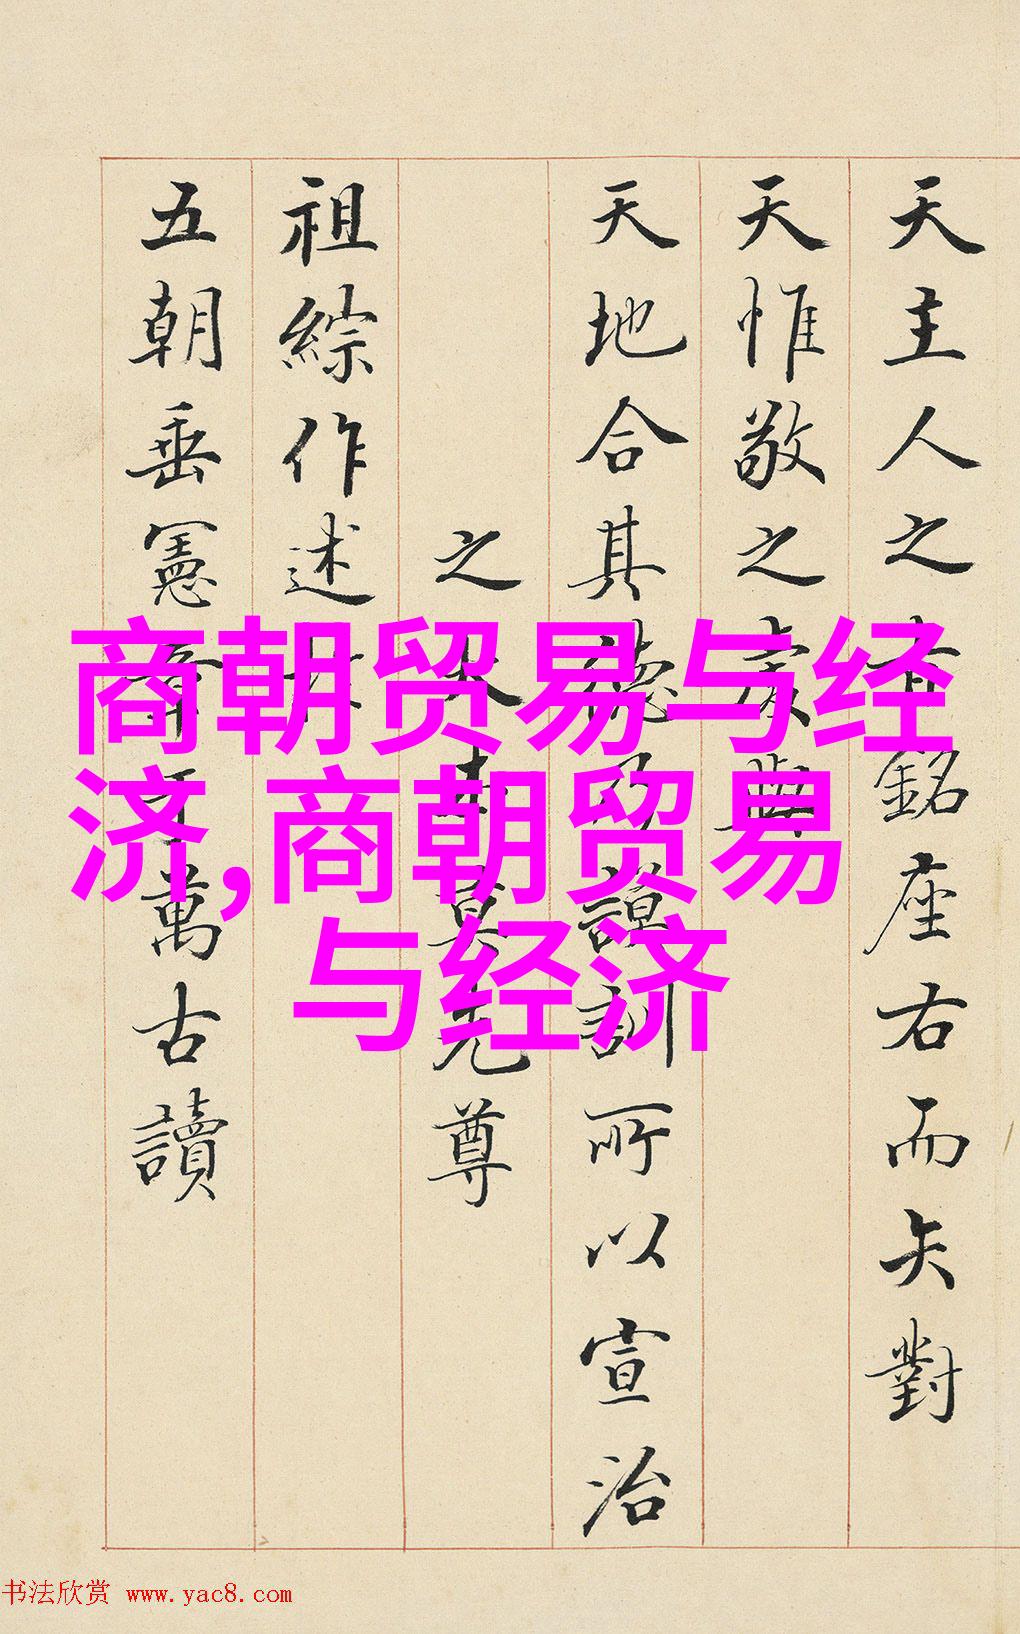 天主人之有銘座右而矢對
天惟敬之與
天地合其德乃謨訓所以宣治
之大莫先尊
祖綜作述
五朝垂憲章于萬古讀
商朝贸易与经
济,商朝贸易
与经济
书法欣赏 www.yac8.com